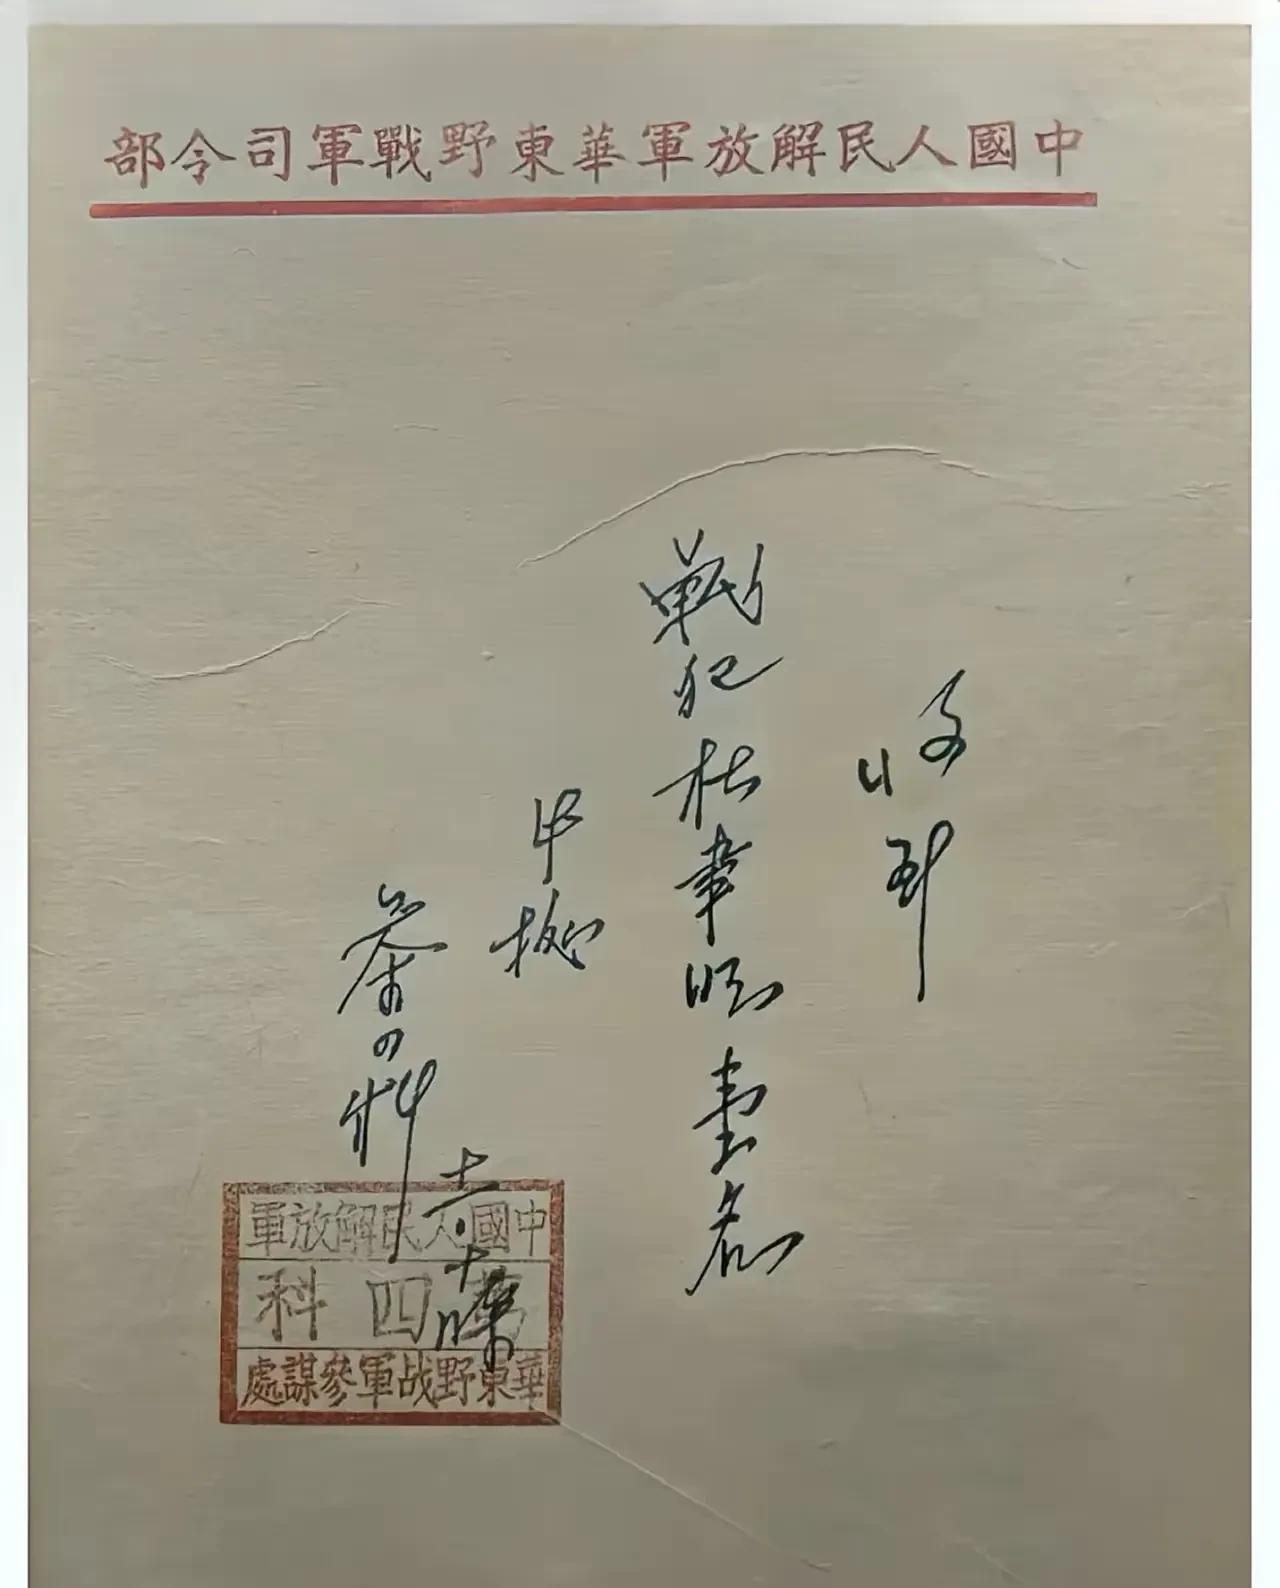 中國人民解放軍華東野戰軍司令部
收到
戰犯杜聿明壹名
此据
參四科
中國人民解放軍
四科
華東野战軍參謀處